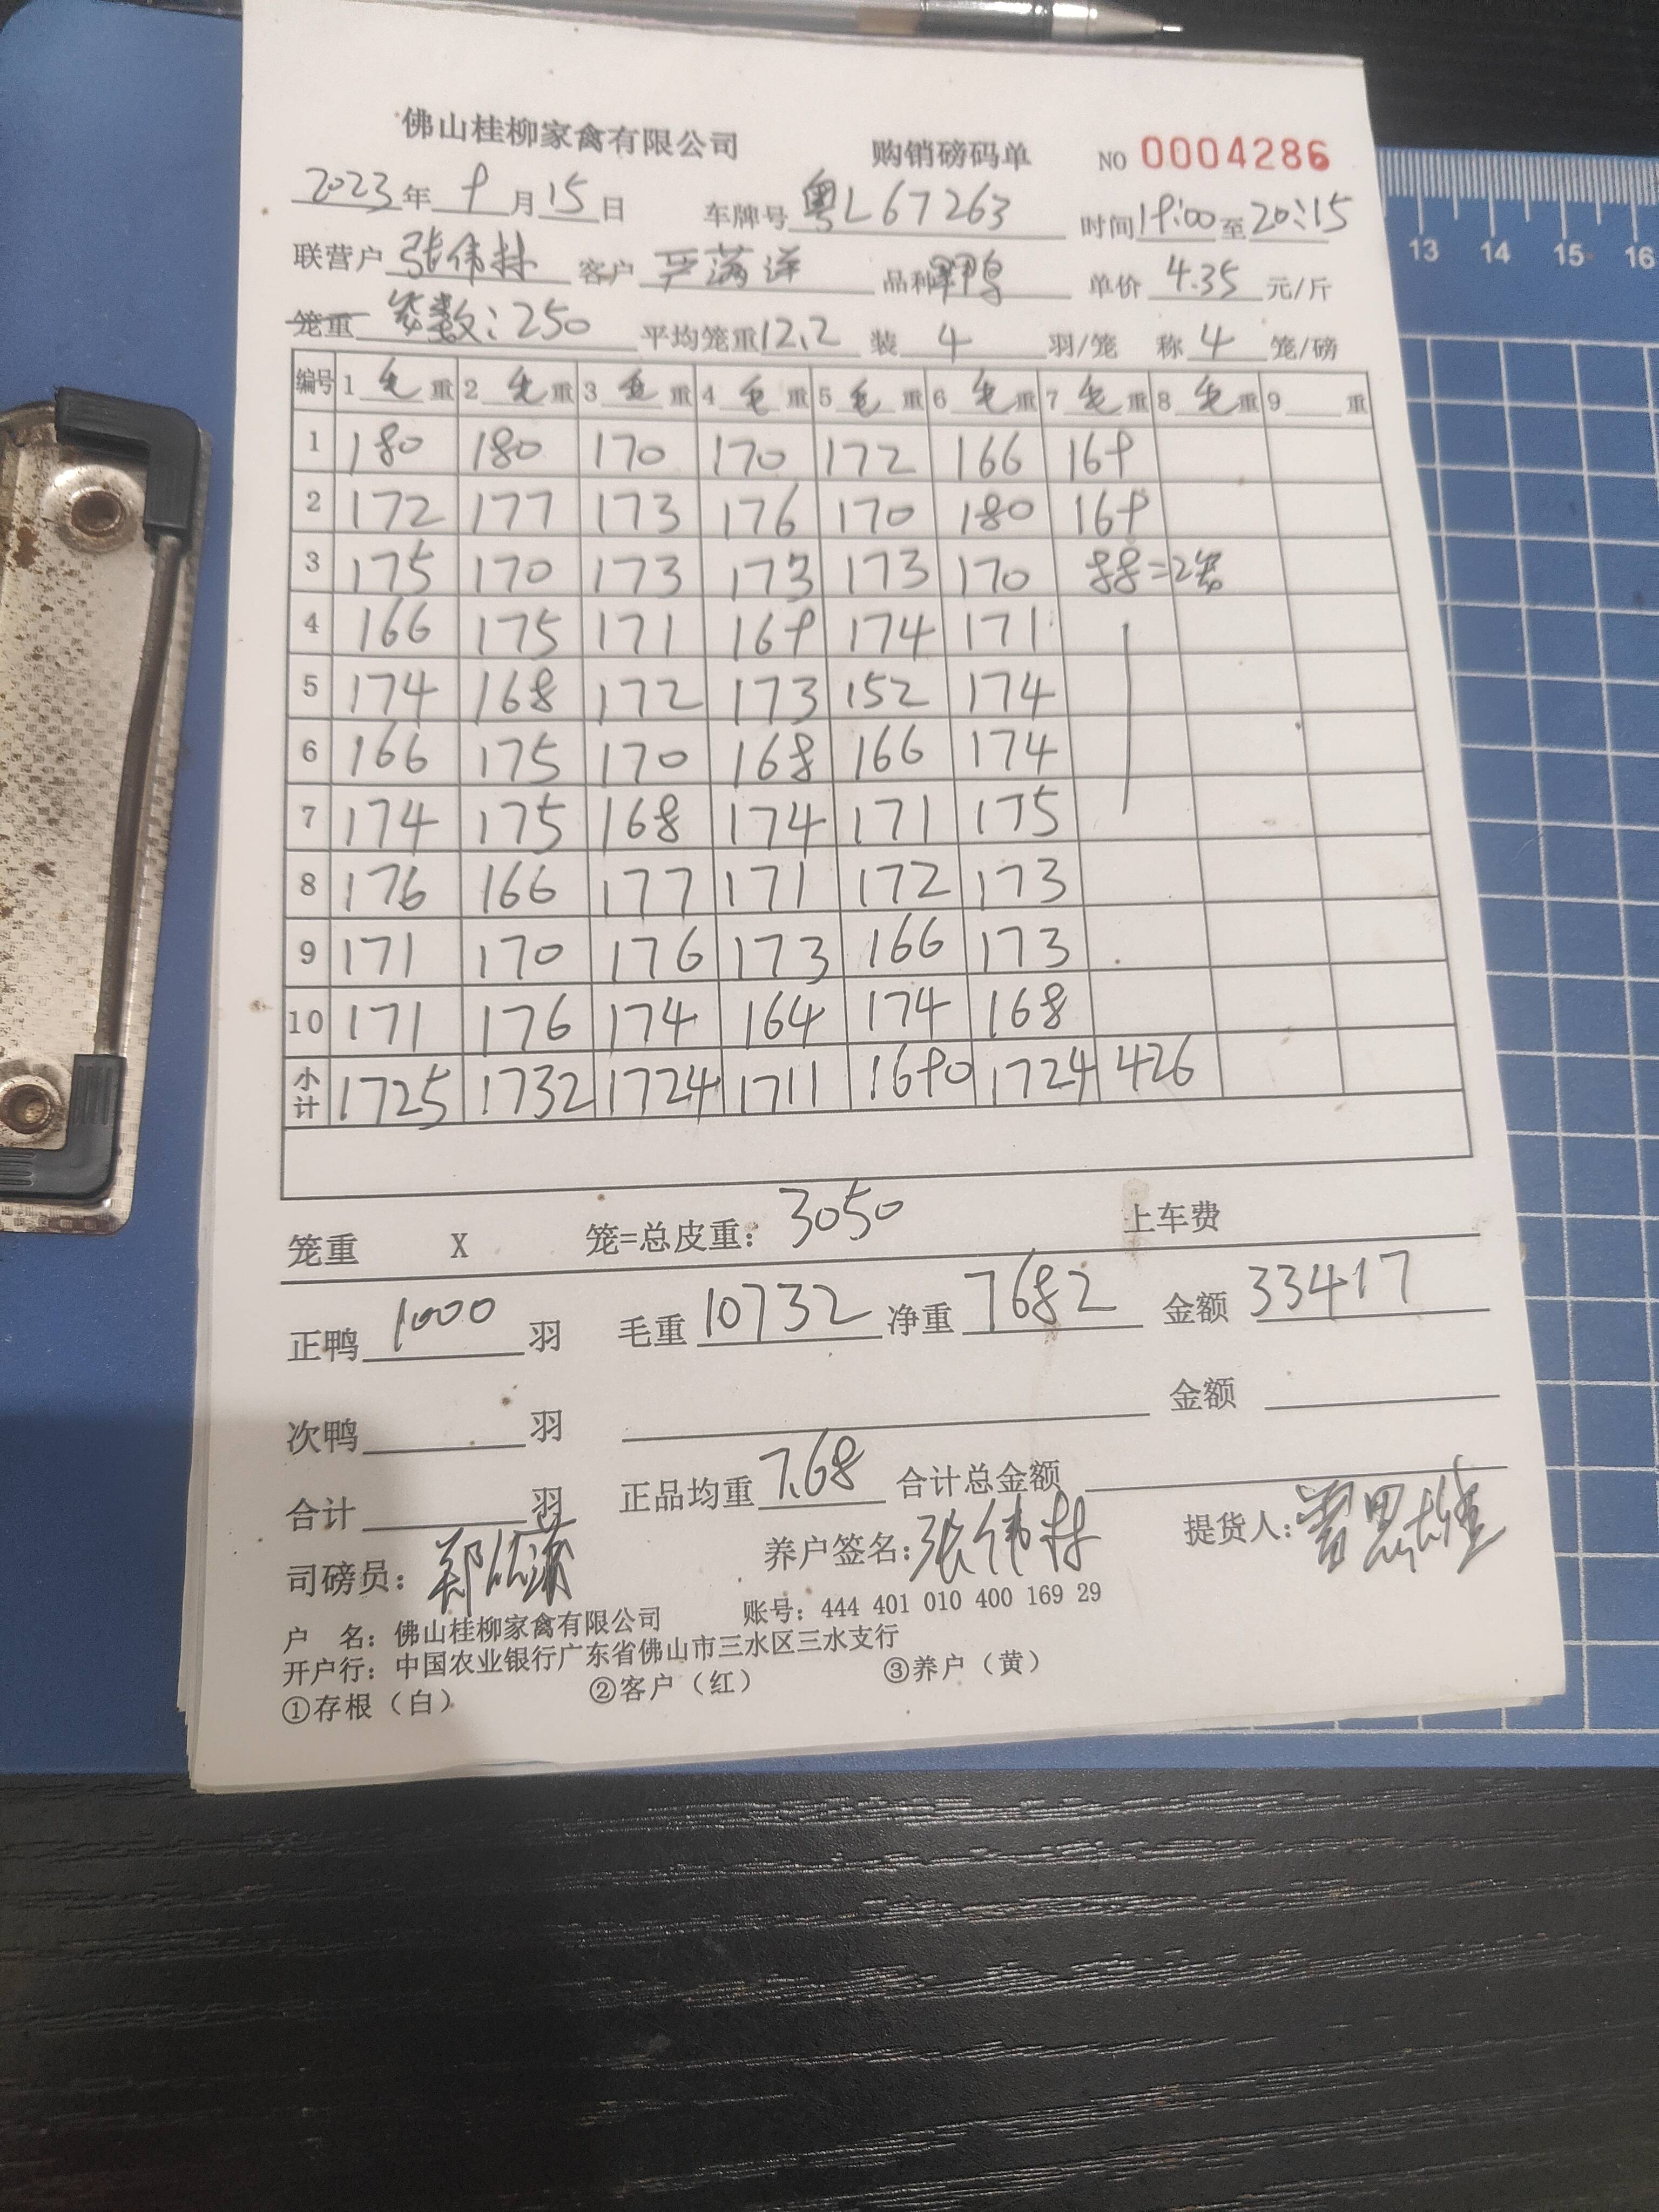 佛山桂柳家禽有限公司 购销磅码单 NO 0004286
2023年 9月15日 车牌号 粤L67263 时间19:00至20:15
联营户 张伟林 客户 严满洋 品种 鸭 单价 4.35 元/斤
笼重 笼数:250 平均笼重12.2 装 4 羽/笼 称 4 笼/磅
编号 1 毛 重 2 毛 重 3 毛 重 4 毛 重 5 毛 重 6 毛 重 7 毛 重 8 毛 重 9 重
1 180 180 170 170 172 166 169
2 172 177 173 176 170 180 169
3 175 170 173 173 173 170 88=2笼
4 166 175 171 169 174 171
5 174 168 172 173 152 174
6 166 175 170 168 166 174
7 174 175 168 174 171 175
8 176 166 177 171 172 173
9 171 170 176 173 166 173
10 171 176 174 164 174 168
小计 1725 1732 1724 1711 1690 1724 426
笼重 X 笼=总皮重: 3050 上车费
正鸭 1000 羽 毛重 10732 净重 7682 金额 33417
次鸭 羽 金额
合计 羽 正品均重 7.68 合计总金额
司磅员: 养户签名:张伟林 提货人:
户 名: 佛山桂柳家禽有限公司 账号: 444 401 010 400 169 29
开户行: 中国农业银行广东省佛山市三水区三水支行
①存根（白） ②客户（红） ③养户（黄）
13 14 15 16